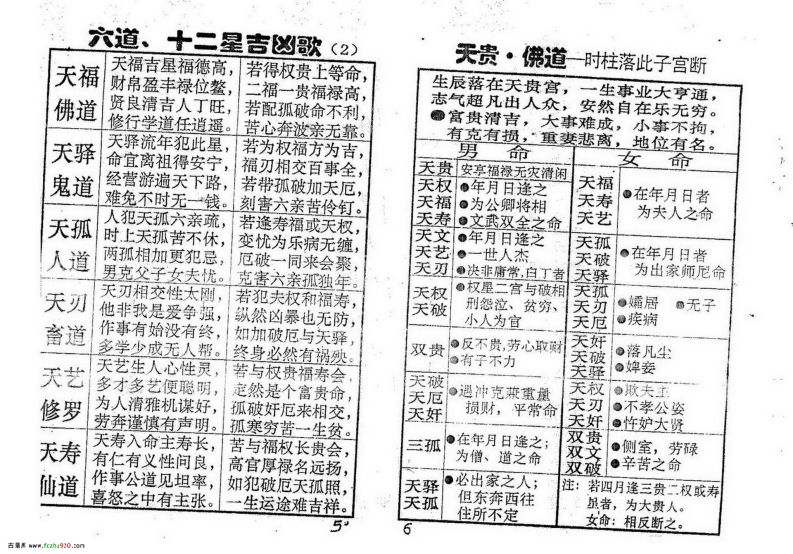 六道、十二星吉凶歌（2）
天福
佛道
天福吉星福德高，若得权贵上等命，
财帛盈丰禄位鳌，二福一贵福禄高，
贤良清吉人丁旺，若配孤破命不利，
修行学道任逍遥。苦心奔波亲无靠。
天驿
鬼道
天驿流年犯此星，若为权福方为吉，
命宜离祖得安宁，福刃相交百事全，
经营游遍天下路，若带孤破加天厄，
难免不时无一钱。刻害六亲苦伶仃。
天孤
人道
人犯天孤六亲疏，若逢寿福或天权，
时上天孤苦不休，变忧为乐病无缠，
两孤相加更犯忌，厄破一同来会聚，
男克父子女夫忧。克害六亲孤独年。
天刃
畜道
天刃相交性太刚，若犯夫权和福寿，
他非我是爱争强，纵然凶暴也无防，
作事有始没有终，如加破厄与天驿，
多学少成无人帮。终身必然有祸殃。
天艺
修罗
天艺生人心性灵，若与权贵福寿会，
多才多艺便聪明，定然是个富贵命，
为人清雅机谋好，孤破奸厄来相交，
劳奔谨慎有声明。孤寒穷苦一生贫。
天寿
仙道
天寿入命主寿长，苦与福权长贵会，
有仁有义性问良，高官厚禄名远扬，
作事公道见坦率，如犯破厄天孤照，
喜怒之中有主张。一生运途难吉祥。
5
天贵·佛道—时柱落此子宫断
生辰落在天贵宫，一生事业大亨通，
志气超凡出人众，安然自在乐无穷。
●富贵清吉，大事难成，小事不拘，
有克有损，重妻悲离，地位有名。
男命
天贵 安享福禄无灾清闲
天权 ●年月日逢之
天福 ●为公卿将相
天寿 ●文武双全之命
天文 ●年月日逢之
天艺 ●一世人杰
天刃 ●决非庸常，白丁者
天权 ●权星二宫与破相
天破 刑怨泣、贫穷、
小人为官
双贵 ●反不贵，劳心取财
●有子不力
天破
天厄 ●遇冲克兼重量
天奸 损财，平常命
三孤 ●在年月日逢之；
为僧、道之命
天驿 ●必出家之人；
天孤 但东奔西往
住所不定
女命
天福
天寿 ●在年月日者
天艺 为夫人之命
天孤
天破 ●在年月日者
天驿 为出家师尼命
天孤
天刃 ●孀居 ●无子
天厄 ●疾病
天奸
天破 ●落凡尘
天驿 ●婢妾
天权 ●欺夫主
天刃 ●不孝公姿
天奸 ●忤妒大贤
双贵
双文 ●侧室，劳碌
双破 ●辛苦之命
注：若四月逢三贵二权或寿
显者，为大贵人。
女命：相反断之。
6
古清居 www.fczhu920.com